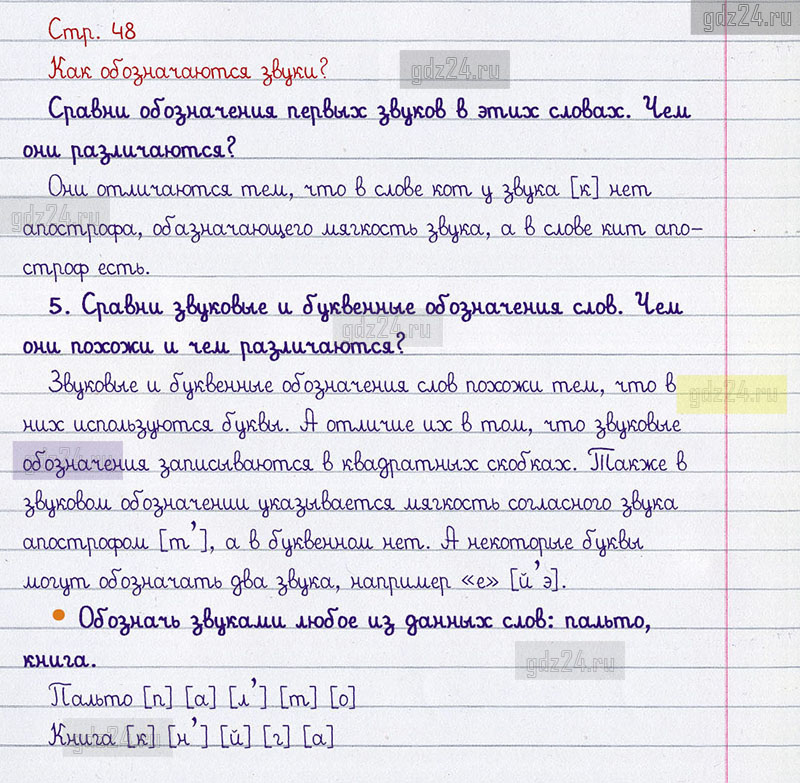 Стр. 48
gdz24.ru
Как обозначаются звуки?
gdz24.ru
Сравни обозначения первых звуков в этих словах. Чем
они различаются?
Они отличаются тем, что в слове кот у звука [к] нет
gdz24.ru
апострофа, обазначающего мягкость звука, а в слове кит апо-
строф есть.
5. Сравни звуковые и буквенные обозначения слов. Чем
gdz24.ru
они похожи и чем различаются?
Звуковые и буквенные обозначения слов похожи тем, что в
gdz24.ru
них используются буквы. А отличие их в том, что звуковые
обозначения записываются в квадратных скобках. Также в
gdz24.ru
звуковом обозначении указывается мягкость согласного звука
апострофом [т’], а в буквенном нет. А некоторые буквы
могут обозначать два звука, например «е» [й’э].
• Обозначь звуками любое из данных слов: пальто,
книга.
gdz24.ru
Пальто [п] [а] [л’] [т] [о]
Книга [к] [н’] [й] [г] [а]
gdz24.ru